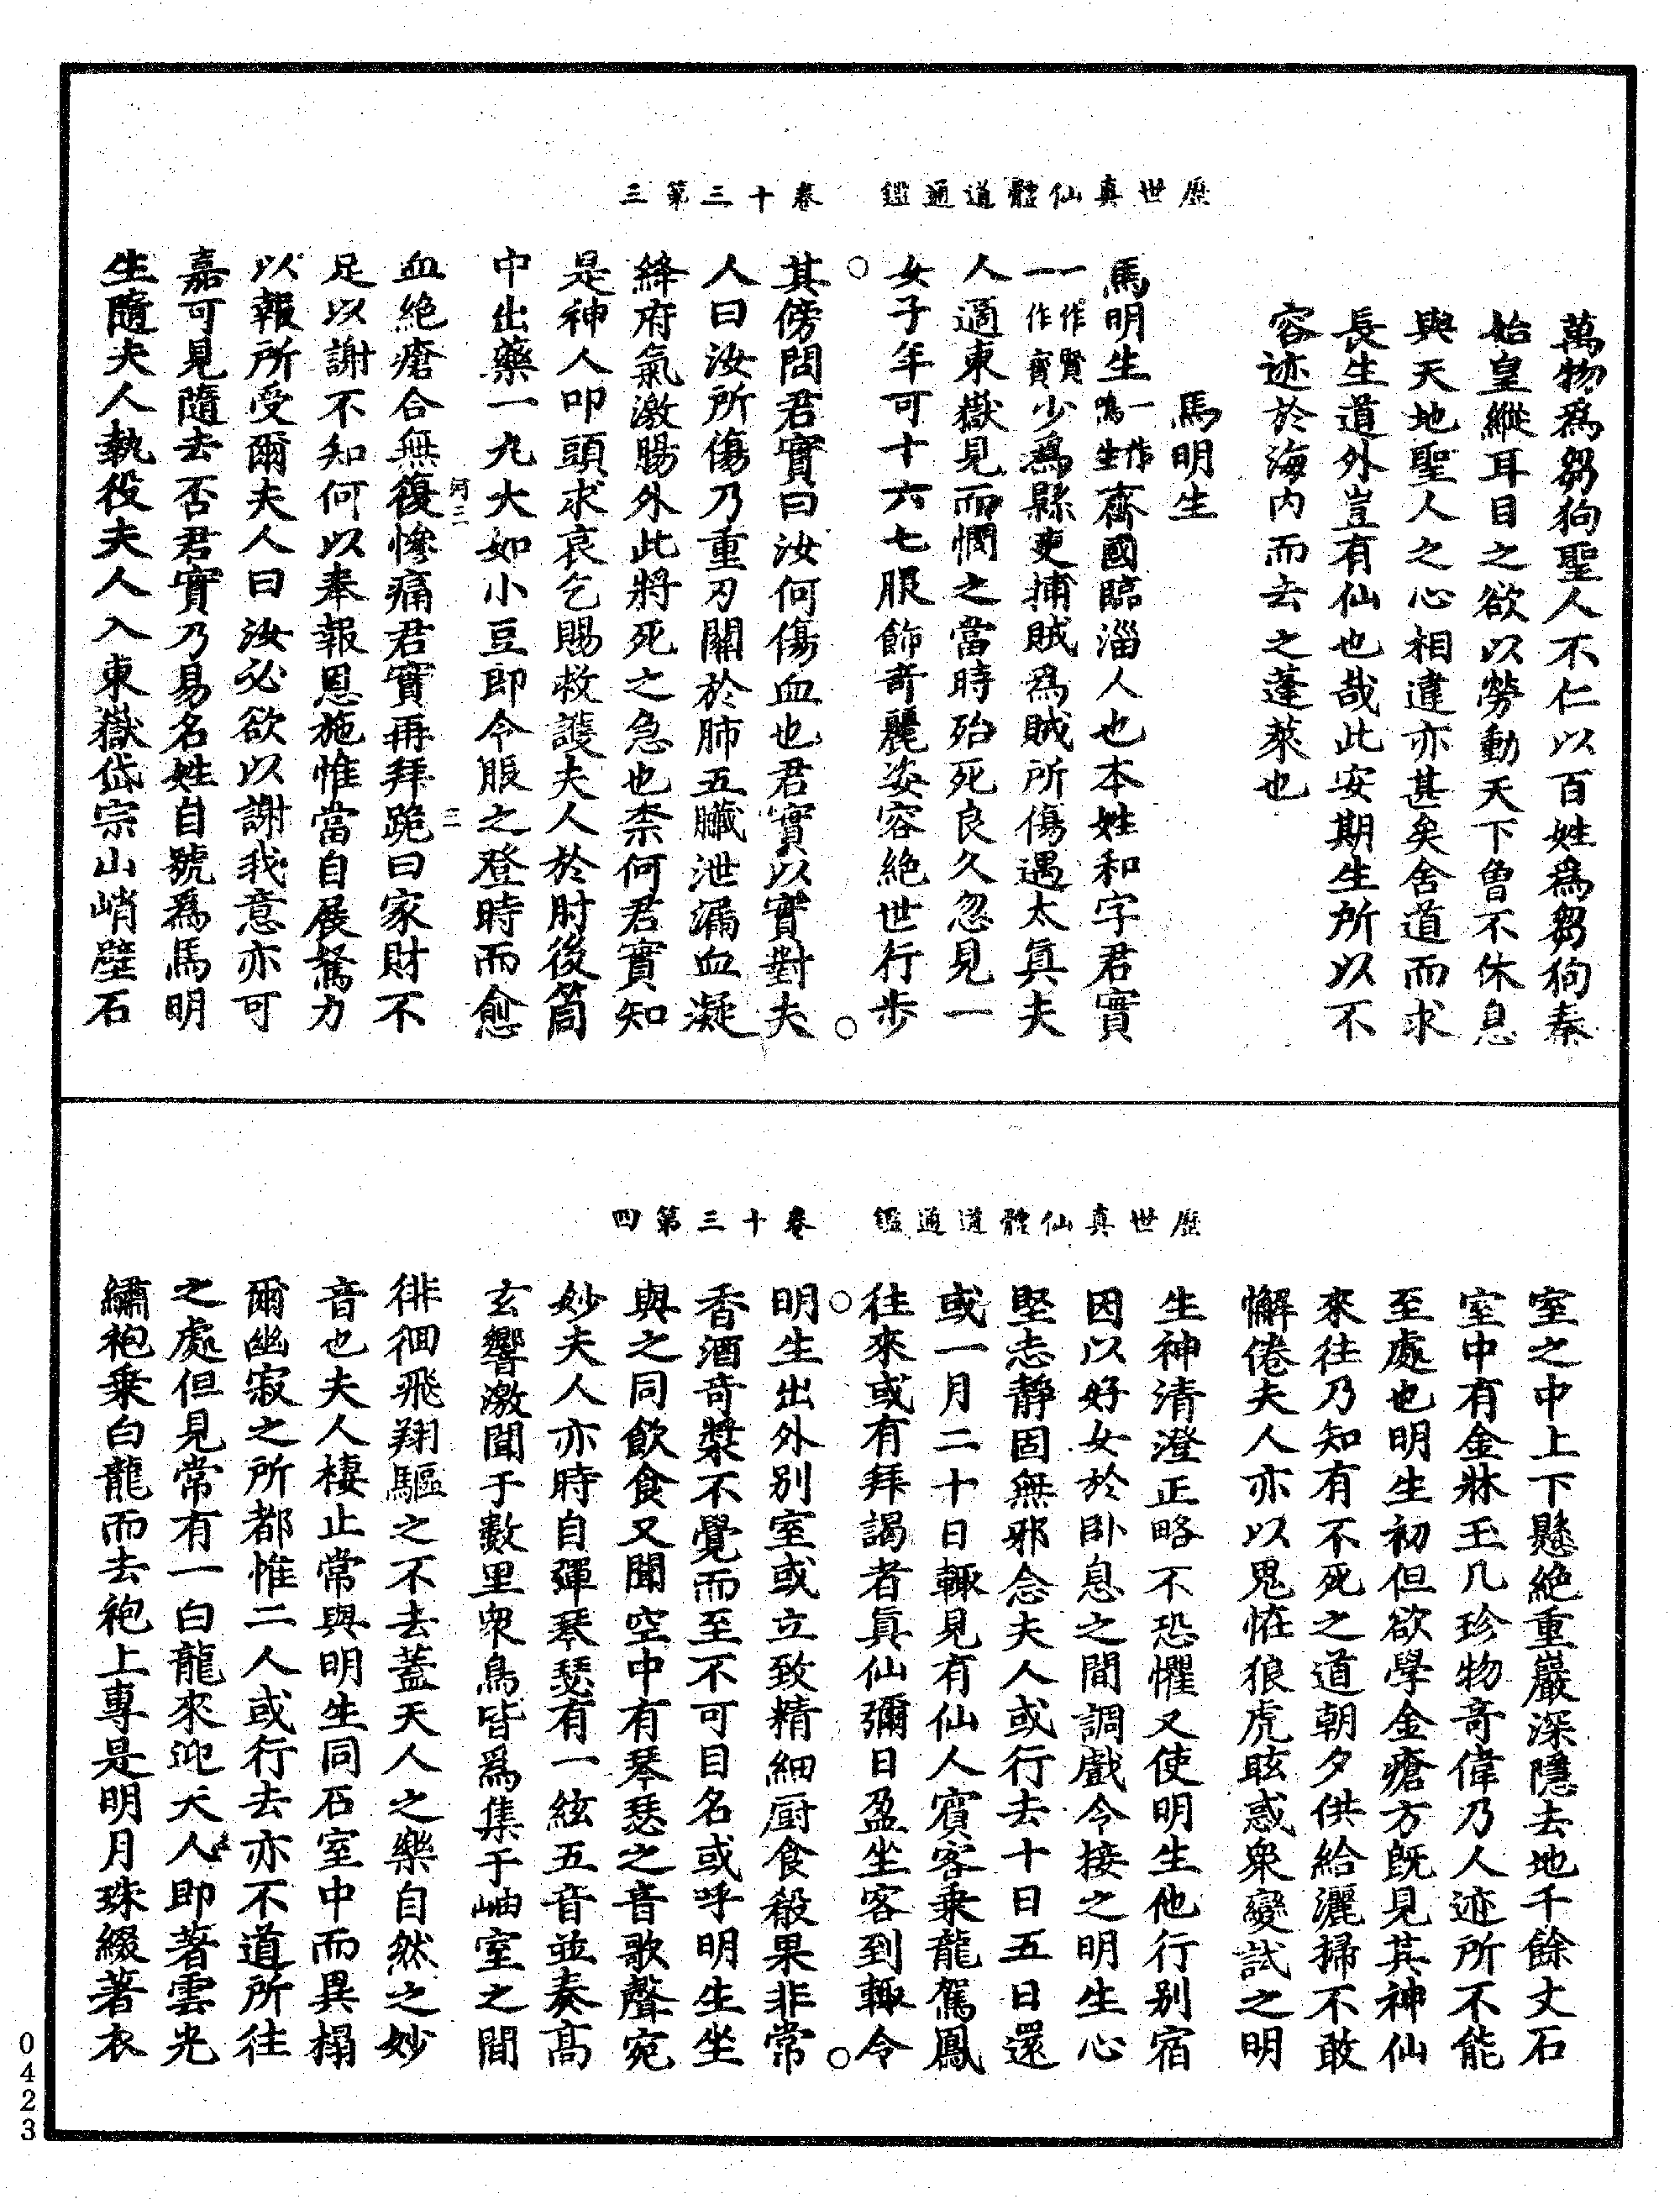 歷世真仙體道通鑑　卷十三第三
萬物爲芻狗聖人不仁以百姓爲芻狗秦
始皇縱耳目之欲以勞動天下曾不休息
與天地聖人之心相違亦甚矣舍道而求
長生道外豈有仙也哉此安期生所以不
容迹於海内而去之蓬萊也
馬明生
馬明生一作鳴生齊國臨淄人也本姓和字君實
一作賢一作寶少爲縣吏捕賊爲賊所傷遇太真夫
人適東嶽見而憫之當時殆死良久忽見一
女子年可十六七服飾奇麗姿容絶世行步
其傍問君實曰汝何傷血也君實以實對夫
人曰汝所傷乃重刃關於肺五臟泄漏血凝
絳府氣激腸外此將死之急也柰何君實知
是神人叩頭求哀乞賜救護夫人於肘後筒
中出藥一丸大如小豆即令服之登時而愈
血絶瘡合無復慘痛君實再拜跪曰家財不
足以謝不知何以奉報恩施惟當自展駑力
以報所受爾夫人曰汝必欲以謝我意亦可
嘉可見隨去否君實乃易名姓自號爲馬明
生隨夫人執役夫人入東嶽岱宗山峭壁石
河三
三
歷世真仙體道通鑑　卷十三第四
室之中上下懸絶重巖深隱去地千餘丈石
室中有金牀玉几珍物奇偉乃人迹所不能
至處也明生初但欲學金瘡方既見其神仙
來往乃知有不死之道朝夕供給灑掃不敢
懈倦夫人亦以鬼恠狼虎眩惑衆變試之明
生神清澄正略不恐懼又使明生他行别宿
因以好女於卧息之間調戲令接之明生心
堅志靜固無邪念夫人或行去十日五日還
或一月二十日輒見有仙人賓客乘龍駕鳳
往來或有拜謁者真仙彌日盈坐客到輒令
明生出外别室或立致精細厨食殽果非常
香酒奇漿不覺而至不可目名或呼明生坐
與之同飲食又聞空中有琴瑟之音歌聲宛
妙夫人亦時自彈琴瑟有一絃五音並奏高
玄響激聞于數里衆鳥皆爲集于岫室之間
徘徊飛翔驅之不去蓋天人之樂自然之妙
音也夫人棲止常與明生同石室中而異榻
爾幽寂之所都惟二人或行去亦不道所往
之處但見常有一白龍來迎夫人即著雲光
繡袍乘白龍而去袍上專是明月珠綴著衣
0423